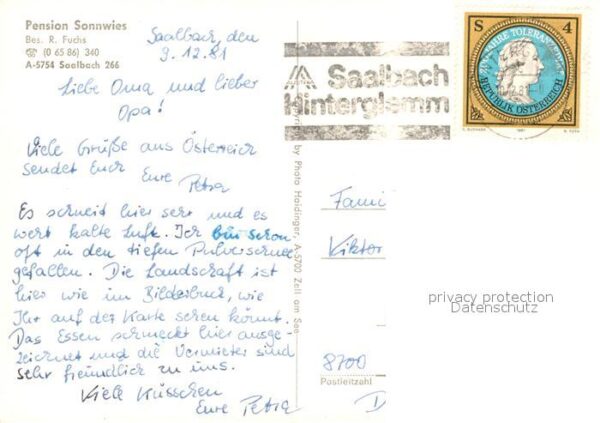 Pension Sonnwies
Bes. R. Fuchs
☎ (0 65 86) 340
A-5754 Saalbach 266
Saalbach, den
9.12.81
Liebe Oma und lieber
Opa!
Viele Grüße aus Österreich
sendet Euch
Eure Petra
Es schneit hier sehr und es
weht kalte Luft. Ich bin schon
oft in den tiefen Pulverschnee
gefallen. Die Landschaft ist
hier wie im Bilderbuch, wie
Ihr auf der Karte sehen könnt.
Das Essen schmeckt hier ausge-
zeichnet und die Vermieter sind
sehr freundlich zu uns.
Viele Küsschen
Eure Petra
by Photo Haidinger, A-5700 Zell am See
Saalbach
Hinterglemm
S 4
JAHRE TOLERANZ
REPUBLIK ÖSTERREICH
1981
Fami
Viktor
8700
Postleitzahl
D
privacy protection
Datenschutz